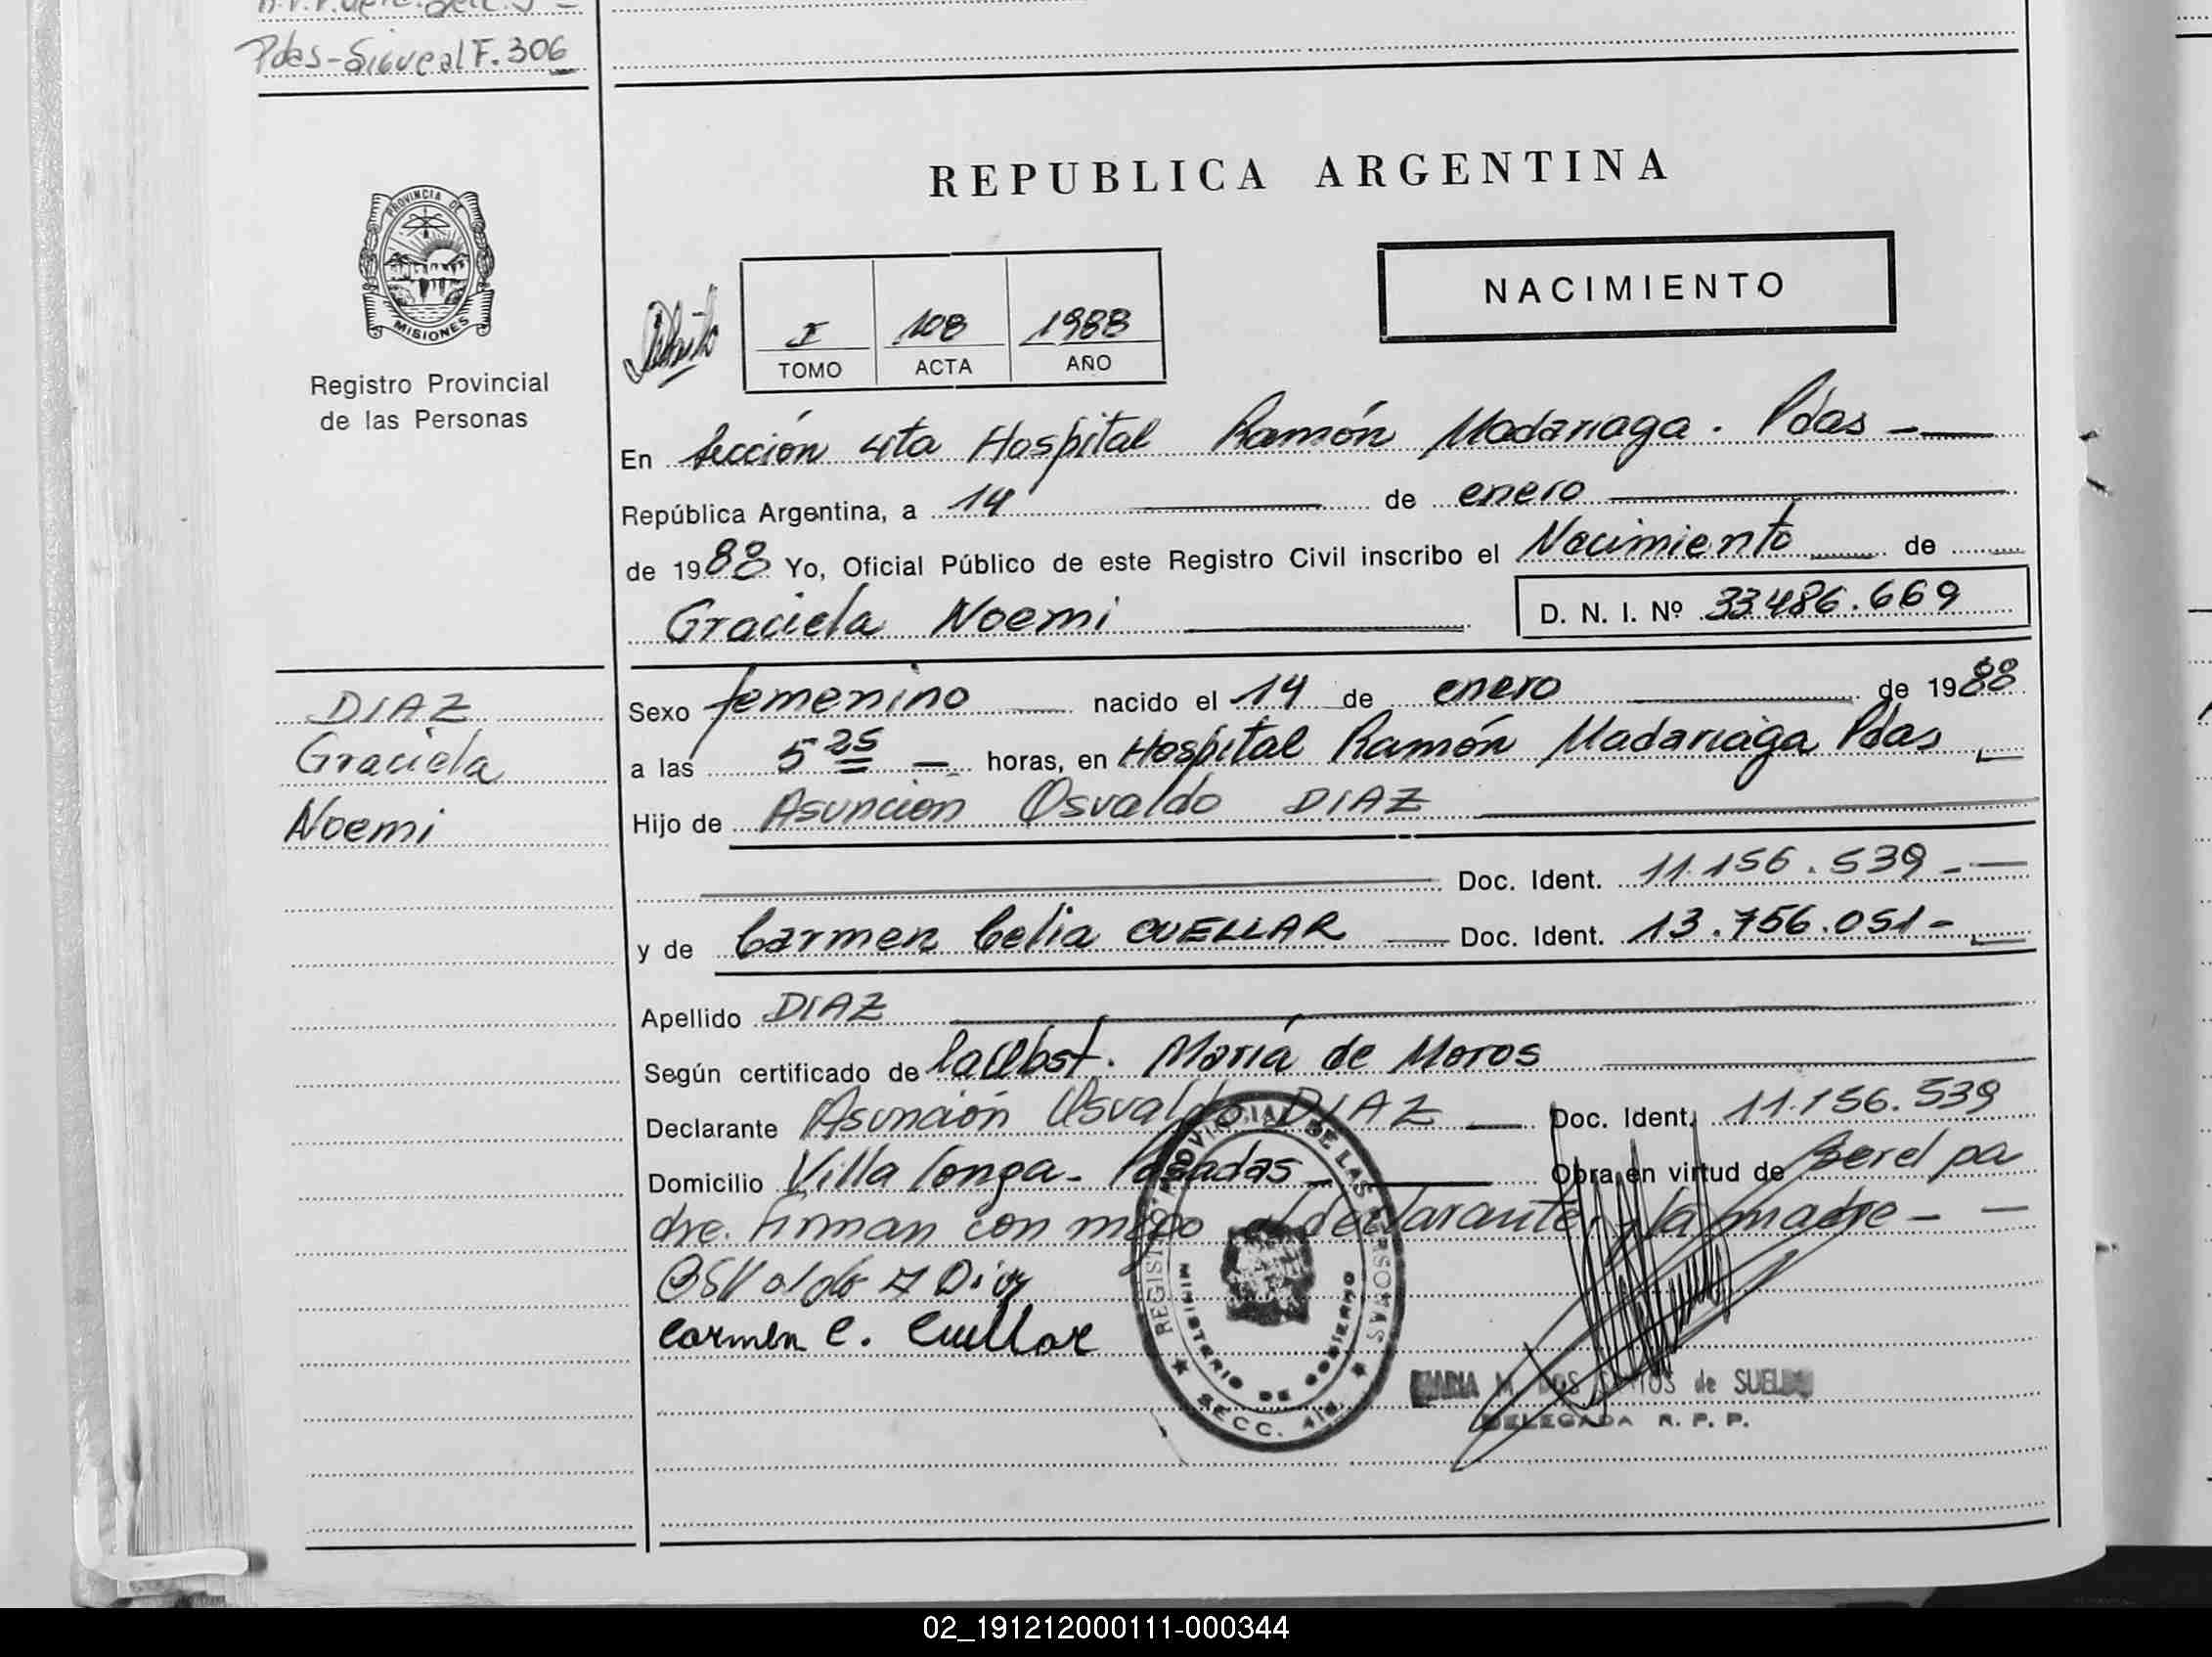 Pdas-Sigue al F.306
PROVINCIA DE
MISIONES
Registro Provincial
de las Personas
REPUBLICA ARGENTINA
NACIMIENTO
I 108 1988
TOMO ACTA AÑO
En Sección 4ta Hospital Ramón Madariaga. Pdas -
República Argentina, a 14 de enero
de 1988 Yo, Oficial Público de este Registro Civil inscribo el Nacimiento de
Graciela Noemi D. N. I. Nº 33486.669
DIAZ
Graciela
Noemi
Sexo femenino nacido el 14 de enero de 1988
a las 5 25 horas, en Hospital Ramón Madariaga Pdas
Hijo de Asuncion Osvaldo DIAZ
Doc. Ident. 11.156.539-
y de Carmen Celia CUELLAR Doc. Ident. 13.756.051-
Apellido DIAZ
Según certificado de la Obst. María de Moros
Declarante Asunción Osvaldo DIAZ Doc. Ident. 11.156.539
Domicilio Villa longa- Posadas Obra en virtud de ser el pa
dre. Firman con migo el declarante y la madre -
Osvaldo A Diaz
Carmen C. Cuellar
REGISTRO PROVINCIAL DE LAS PERSONAS
MINISTERIO DE GOBIERNO
SECC. 4ta
MARIA M. DOS SANTOS de SUELDO
DELEGADA R. P. P.
02_191212000111-000344